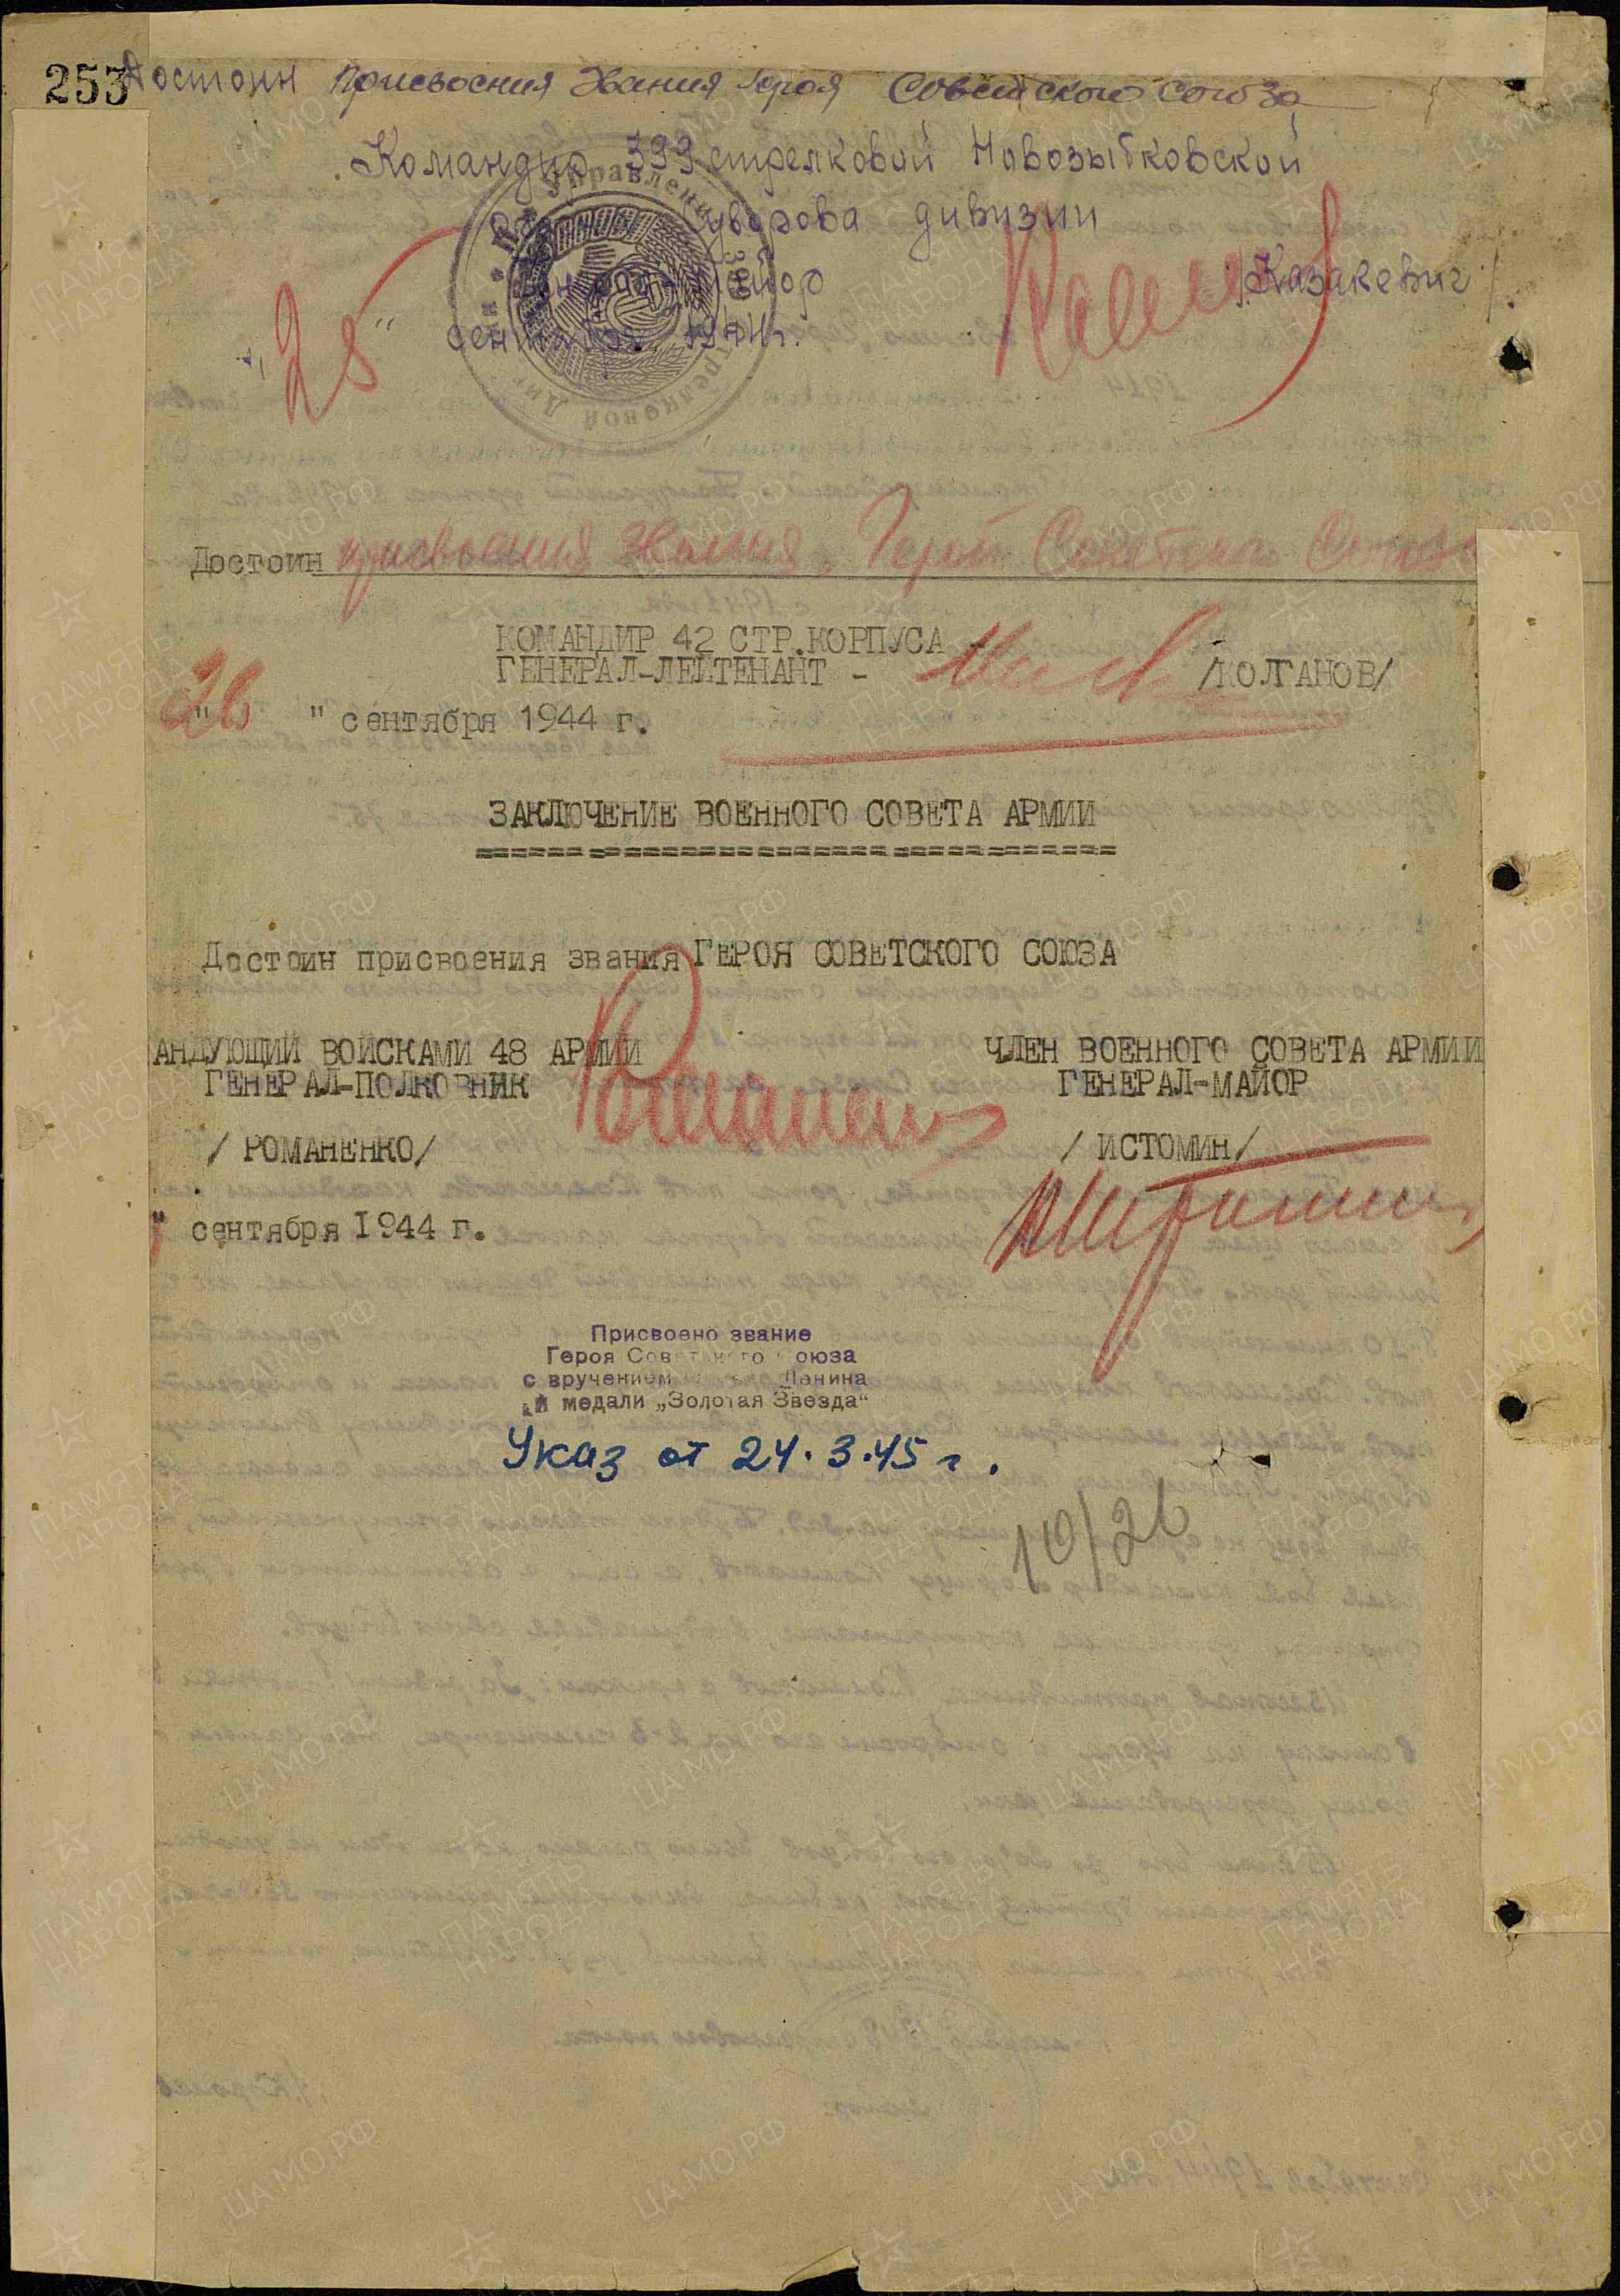 253
Достоин присвоения звания Героя Советского Союза
Командир 399 стрелковой Новозыбковской
Суворова дивизии
майор /Казакевич/
"25" сентября 1944г.
Достоин присвоения звания "Герой Советска Союза
КОМАНДИР 42 СТР.КОРПУСА
ГЕНЕРАЛ-ЛЕЙТЕНАНТ - /КОЛГАНОВ/
"26" сентября 1944 г.
ЗАКЛЮЧЕНИЕ ВОЕННОГО СОВЕТА АРМИИ
Достоин присвоения звания ГЕРОЯ СОВЕТСКОГО СОЮЗА
АНДУЮЩИЙ ВОЙСКАМИ 48 АРМИИ
ГЕНЕРАЛ-ПОЛКОВНИК
/ РОМАНЕНКО/
ЧЛЕН ВОЕННОГО СОВЕТА АРМИИ
ГЕНЕРАЛ-МАЙОР
/ ИСТОМИН/
" сентября 1944 г.
Присвоено звание
Героя Советского Союза
с вручением Ленина
и медали „Золотая Звезда“
Указ от 24.3.45 г.
10/26